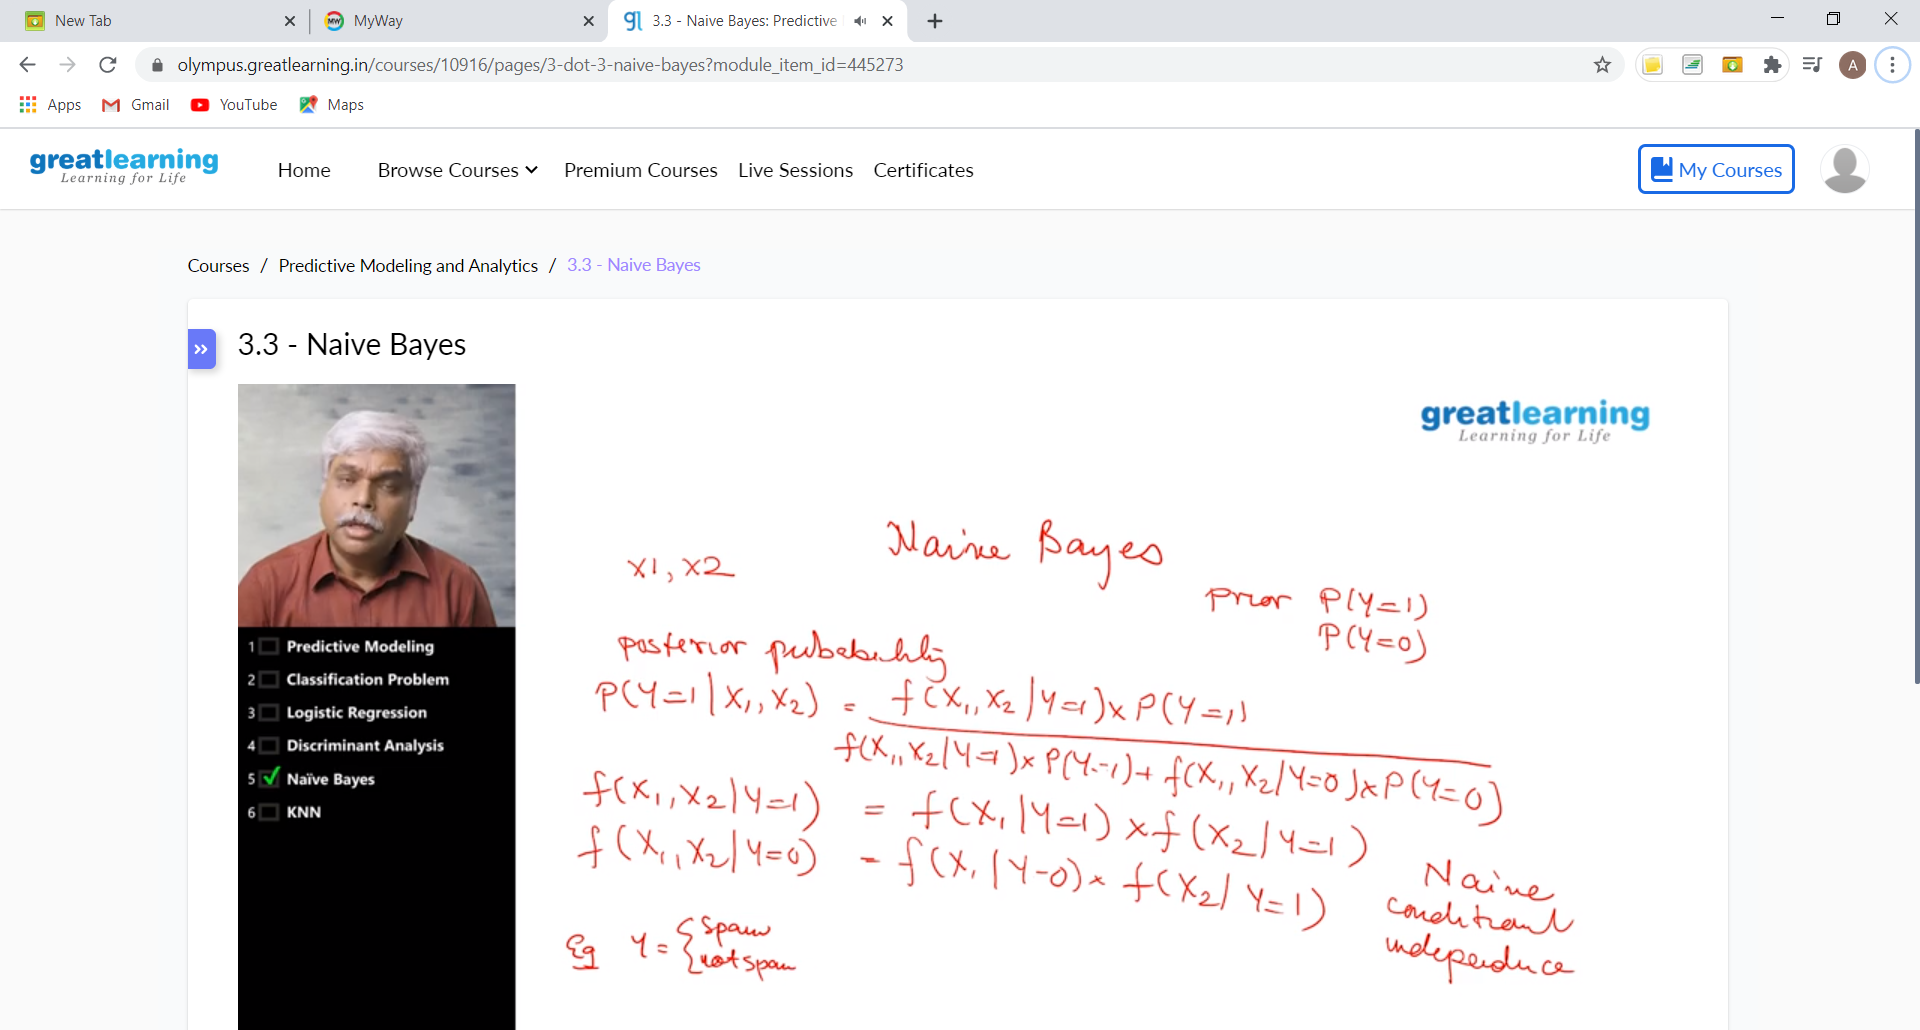 New Tab
MyWay
3.3 - Naive Bayes: Predictive
olympus.greatlearning.in/courses/10916/pages/3-dot-3-naive-bayes?module_item_id=445273
A
Apps Gmail YouTube Maps
greatlearning
Learning for Life
Home Browse Courses Premium Courses Live Sessions Certificates
My Courses
Courses / Predictive Modeling and Analytics / 3.3 - Naive Bayes
3.3 - Naive Bayes
greatlearning
Learning for Life
1 Predictive Modeling
2 Classification Problem
3 Logistic Regression
4 Discriminant Analysis
5 Naïve Bayes
6 KNN
Naive Bayes
x1, x2
prior P(Y=1)
P(Y=0)
posterior probability
P(Y=1|X₁,X₂) = f(X₁,X₂|Y=1)×P(Y=1)
f(X₁,X₂|Y=1)×P(Y=1)+f(X₁,X₂|Y=0)×P(Y=0)
f(X₁,X₂|Y=1) = f(X₁|Y=1)×f(X₂|Y=1)
f(X₁,X₂|Y=0) = f(X₁|Y=0)×f(X₂|Y=1)
Naive
conditional
independence
Eg Y = { spam
{ not spam